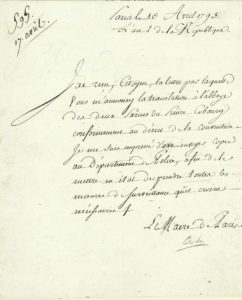 595.
17 avril.
Paris le 18 Avril 1793
2 de la République.
J'ai reçu, Citoyen, la lettre par laquelle
vous m'annoncez la translation à l'abbaye
des deux du Prince Cobourg
conformément au décret de la Convention
Je me suis empressé d'en envoyer copie
au Département de Police, afin de le
mettre en état de prendre toutes les
mesures de surveillance qu'il croira
nécessaires
Le Maire de Paris
Pache